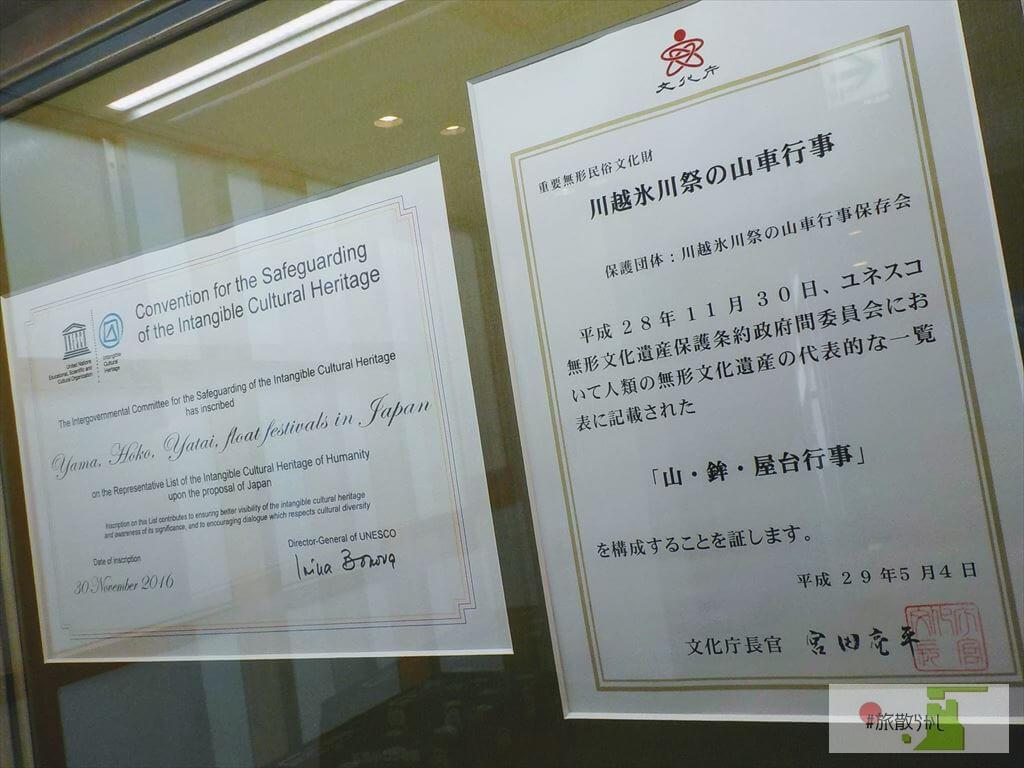 Convention for the Safeguarding
of the Intangible Cultural Heritage
United Nations
Educational, Scientific and
Cultural Organization
Intangible
Cultural
Heritage
The Intergovernmental Committee for the Safeguarding of the Intangible Cultural Heritage
has inscribed
Yama, Hoko, Yatai, float festivals in Japan
on the Representative List of the Intangible Cultural Heritage of Humanity
upon the proposal of Japan
Inscription on this List contributes to ensuring better visibility of the intangible cultural heritage
and awareness of its significance, and to encouraging dialogue which respects cultural diversity
Date of inscription
30 November 2016
Director-General of UNESCO
Irina Bokova
文化庁
重要無形民俗文化財
川越氷川祭の山車行事
保護団体：川越氷川祭の山車行事保存会
平成28年11月30日、ユネスコ
無形文化遺産保護条約政府間委員会にお
いて人類の無形文化遺産の代表的な一覧
表に記載された
「山・鉾・屋台行事」
を構成することを証します。
平成29年5月4日
文化庁長官 宮田亮平
文化庁長官
#旅散らかし